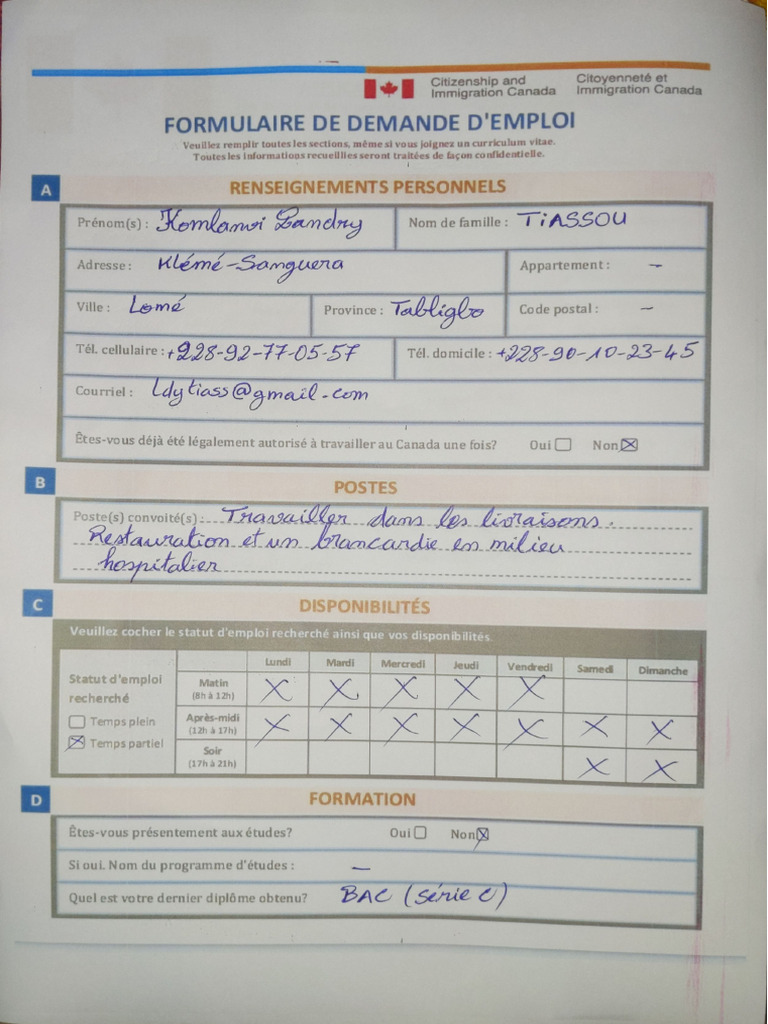 Citizenship and Immigration Canada
Citoyenneté et Immigration Canada
FORMULAIRE DE DEMANDE D'EMPLOI
Veuillez remplir toutes les sections, même si vous joignez un curriculum vitae.
Toutes les informations recueillies seront traitées de façon confidentielle.
A RENSEIGNEMENTS PERSONNELS
Prénom(s) : Komlanvi Landry Nom de famille : TiASSOU
Adresse : Klémé-Sanguera Appartement : -
Ville : Lomé Province : Tabligbo Code postal : -
Tél. cellulaire : +228-92-77-05-57 Tél. domicile : +228-90-10-23-45
Courriel : ldytiass@gmail.com
Êtes-vous déjà été légalement autorisé à travailler au Canada une fois? Oui ☐ Non ☒
B POSTES
Poste(s) convoité(s) : Travailler dans les livraisons.
Restauration et un brancardie en milieu
hospitalier
C DISPONIBILITÉS
Veuillez cocher le statut d'emploi recherché ainsi que vos disponibilités.
Statut d'emploi recherché
☐ Temps plein
☒ Temps partiel
Lundi Mardi Mercredi Jeudi Vendredi Samedi Dimanche
Matin (8h à 12h) X X X X X
Après-midi (12h à 17h) X X X X X X X
Soir (17h à 21h) X X
D FORMATION
Êtes-vous présentement aux études? Oui ☐ Non ☒
Si oui. Nom du programme d'études : -
Quel est votre dernier diplôme obtenu? BAC (série C)